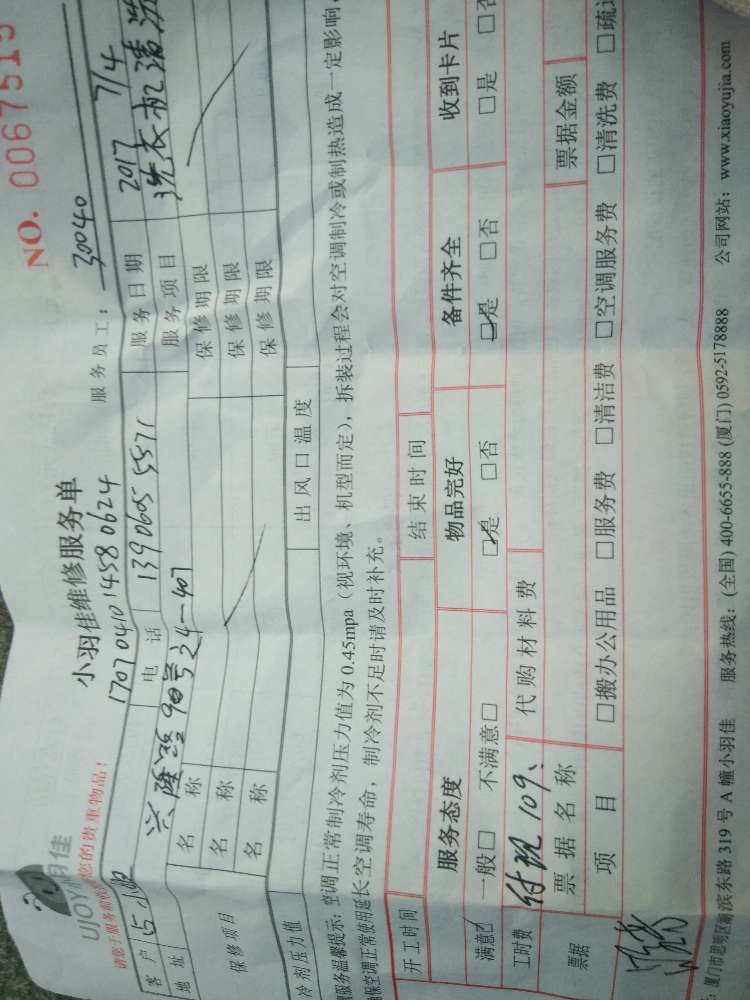 NO. 0067515
小羽佳维修服务单
服务员工： 30040
1707041014580624
UJOY 羽佳
请您于服务前收好您的贵重物品！
客户 电话 139 0605 5571 服务日期 2017 7/4
地址 兴隆路90号之4-407 服务项目 洗衣机清洗
保修项目
名称 保修期限
名称 保修期限
名称 保修期限
冷剂压力值 出风口温度
服务温馨提示：空调正常制冷剂压力值为 0.45mpa（视环境、机型而定），拆装过程会对空调制冷或制热造成一定影响，
确保空调正常使用延长空调寿命，制冷剂不足时请及时补充。
开工时间 结束时间
服务态度 物品完好 备件齐全 收到卡片
满意☑ 一般□ 不满意□ ☑是 □否 ☑是 □否 □是 □否
工时费 付现109、 代购材料费
票据 票据名称 票据金额
项目 □搬办公用品 □服务费 □清洁费 □空调服务费 □清洗费
：厦门市思明区湖滨东路 319 号 A 幢小羽佳 服务热线：(全国) 400-6655-888 (厦门) 0592-5178888 公司网站：www.xiaoyujia.com